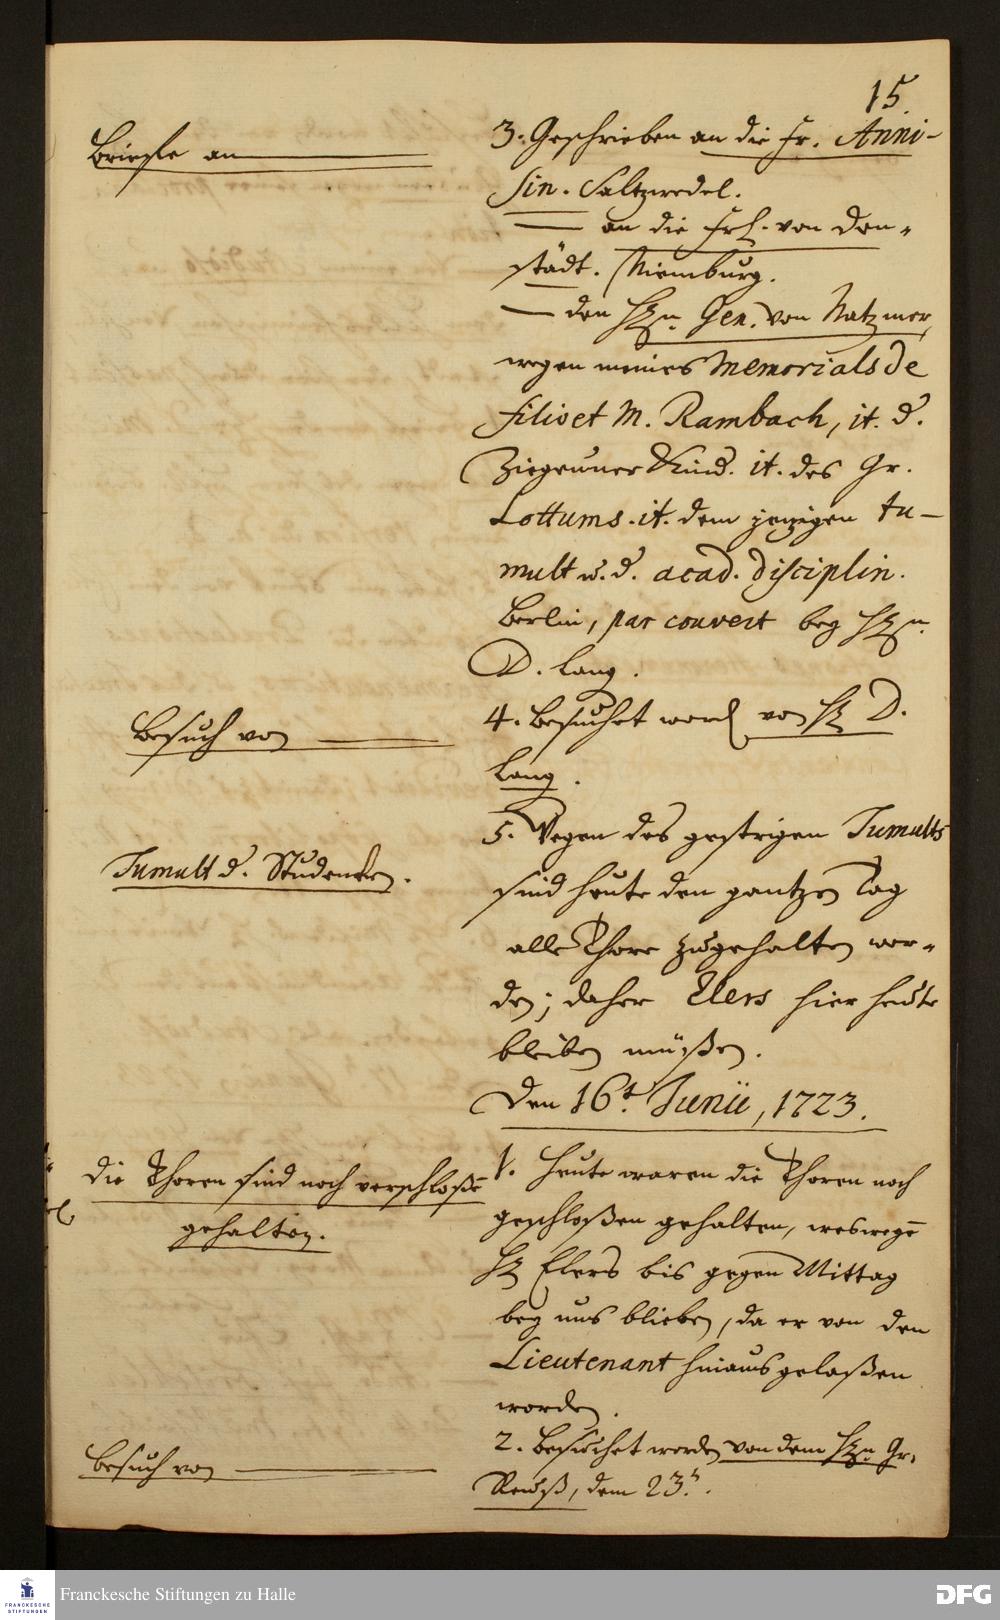 15
Brieffe an
3. Geschrieben an die Fr. Anni-
sin. Saltzwedel.
— an die Frl. von Don-
städt. Nienburg.
— den HEn. Gen. von Natzmer,
wegen meines Memorials de
filio et M. Rambach, it. d.
Ziegeuner Kind. it. des Gr.
Lottums. it. dem jetzigen tu-
mult u. d. acad. disciplin.
Berlin, par couvert bey HEn.
D. Lang.
Besuch von
4. Besuchet word von HE D.
Lang.
Tumult d. Studenten.
5. Wegen des gestrigen Tumults
sind heute den gantzen Tag
alle Thore zugehalten wor-
den; daher Elers hier heute
bleiben müßen.
Den 16t. Junii, 1723.
Die Thoren sind noch verschloße
gehalten.
1. Heute waren die Thoren noch
geschloßen gehalten, weswege
HE Elers bis gegen Mittag
bey uns blieben, da er von den
Lieutenant hinausgelaßen
worden.
Besuch von
2. Besuchet worden von dem HEn. Gr.
Reuß, dem 23.
Franckesche Stiftungen zu Halle
FRANCKESCHE
STIFTUNGEN
DFG